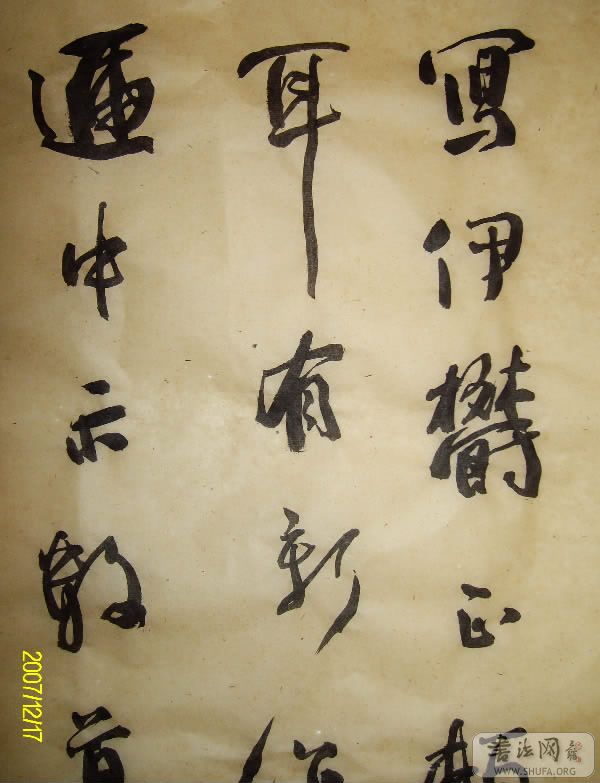 寫伊鬱正
耳有新作
遞中示數首
2007/12/17
書法网
WWW.SHUFA.ORG